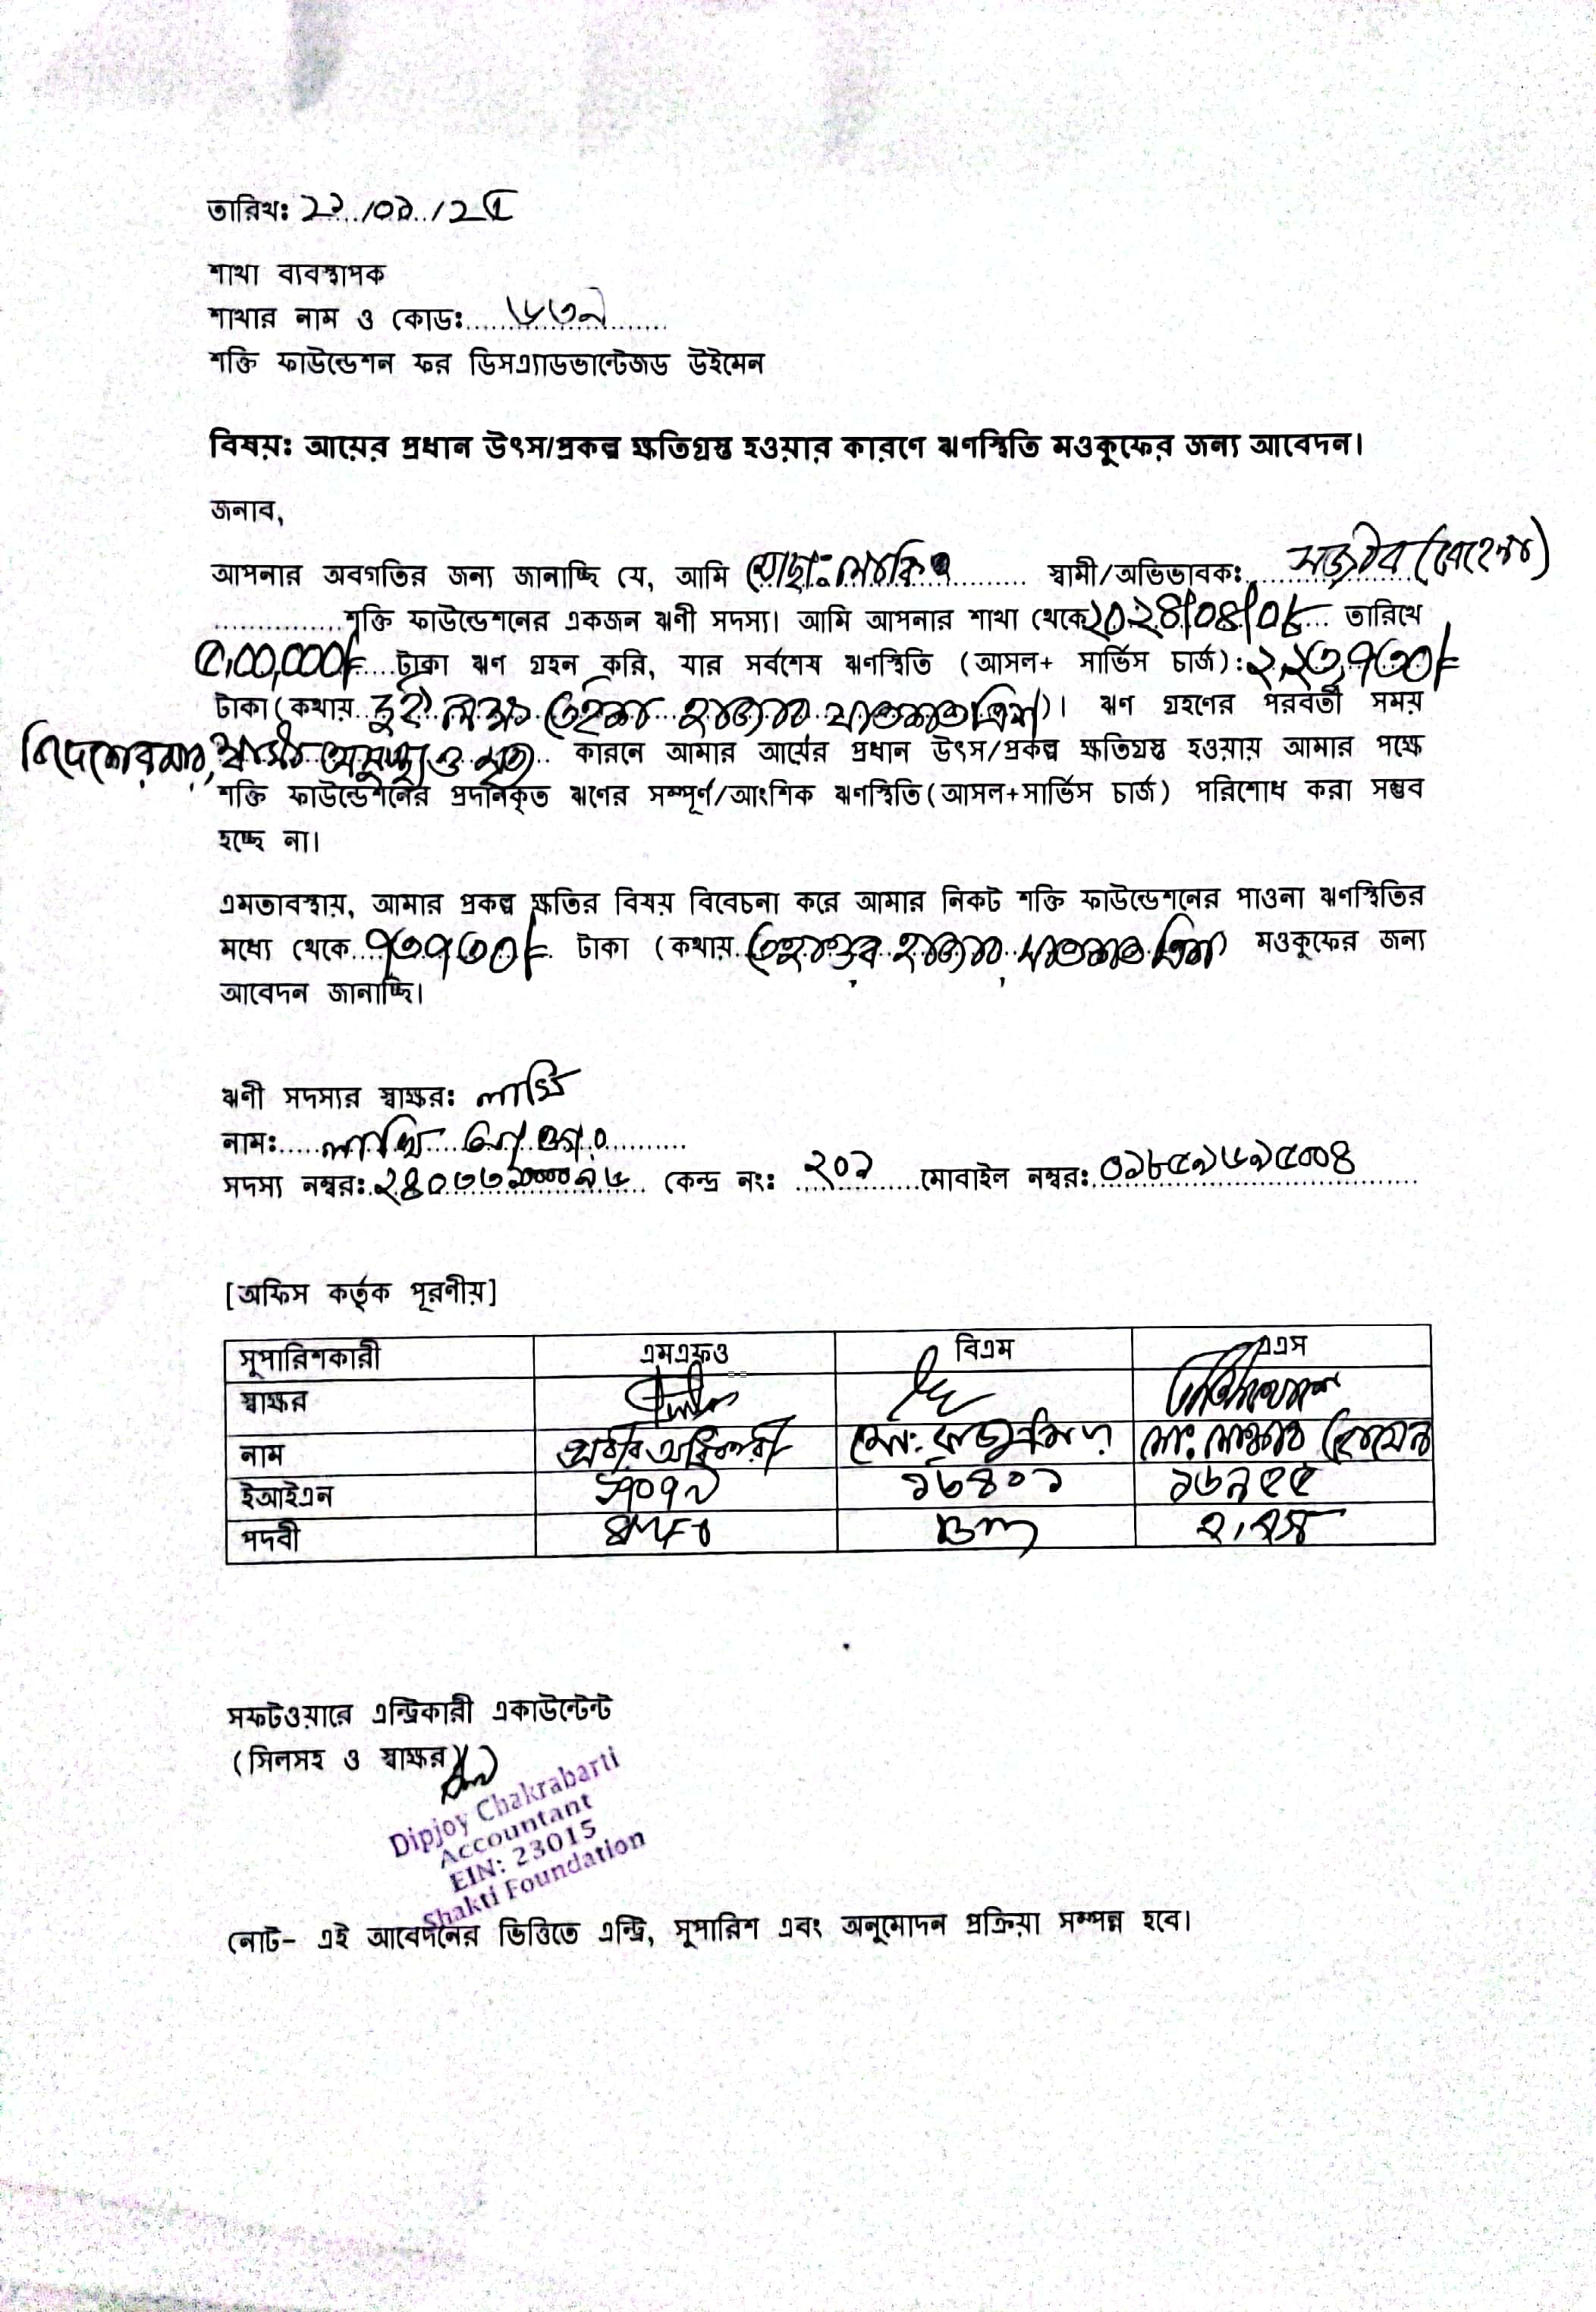 তারিখঃ ২১/০৯/২৫
শাখা ব্যবস্থাপক
শাখার নাম ও কোডঃ ৬৩৭
শক্তি ফাউন্ডেশন ফর ডিসএ্যাডভান্টেজড উইমেন
বিষয়ঃ আয়ের প্রধান উৎস/প্রকল্প ক্ষতিগ্রস্ত হওয়ার কারণে ঋণস্থিতি মওকুফের জন্য আবেদন।
জনাব,
আপনার অবগতির জন্য জানাচ্ছি যে, আমি মোছা: স্বামী/অভিভাবকঃ
শক্তি ফাউন্ডেশনের একজন ঋণী সদস্য। আমি আপনার শাখা থেকে ২০২৪/০৪/০৮ তারিখে
৫,০০,০০০/- টাকা ঋণ গ্রহন করি, যার সর্বশেষ ঋণস্থিতি (আসল+ সার্ভিস চার্জ): ২,২৩,৭৩০/-
টাকা (কথায় দুই লক্ষ তেইশ হাজার সাতশত ত্রিশ)। ঋণ গ্রহণের পরবর্তী সময়
স্বামী অসুস্থ্য ও মৃত কারনে আমার আয়ের প্রধান উৎস/প্রকল্প ক্ষতিগ্রস্ত হওয়ায় আমার পক্ষে
শক্তি ফাউন্ডেশনের প্রদানকৃত ঋণের সম্পূর্ণ/আংশিক ঋণস্থিতি (আসল+সার্ভিস চার্জ) পরিশোধ করা সম্ভব
হচ্ছে না।
এমতাবস্থায়, আমার প্রকল্প ক্ষতির বিষয় বিবেচনা করে আমার নিকট শক্তি ফাউন্ডেশনের পাওনা ঋণস্থিতির
মধ্যে থেকে ৭৩৭৩০/- টাকা (কথায় তেহাত্তর হাজার সাতশত ত্রিশ) মওকুফের জন্য
আবেদন জানাচ্ছি।
ঋণী সদস্যর স্বাক্ষরঃ লাখি
নামঃ লাখি
সদস্য নম্বরঃ কেন্দ্র নংঃ ২০১ মোবাইল নম্বরঃ ০১৮৫৯৬৯৫০০৪
[অফিস কর্তৃক পূরণীয়]
সুপারিশকারী এমএফও বিএম এএস
স্বাক্ষর
নাম অধিকারী মোঃ
ইআইএন ১৬৪০১ ১৬৭৫৫
পদবী SMFO BM এ,এস
সফটওয়ারে এন্ট্রিকারী একাউন্টেন্ট
(সিলসহ ও স্বাক্ষর)
Dipjoy Chakrabarti
Accountant
EIN: 23015
Shakti Foundation
নোট- এই আবেদনের ভিত্তিতে এন্ট্রি, সুপারিশ এবং অনুমোদন প্রক্রিয়া সম্পন্ন হবে।